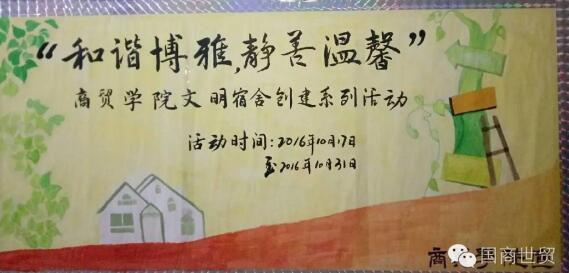 “和谐博雅,静善温馨”
商贸学院文明宿舍创建系列活动
活动时间:2016年10月17日
至2016年10月31日
商
国商世贸